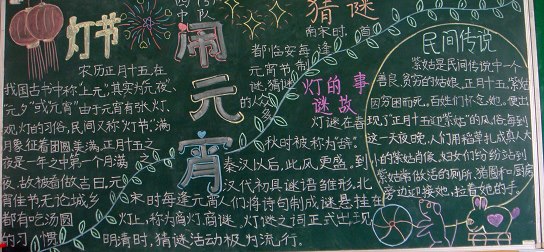 灯节
农历正月十五,在
我国古书中称"上元",其宵为元夜、
"元夕"或"元宵"由于元宵有张灯、
观灯的习俗,民间又称"灯节"。满
月象征着团圆美满,正月十五之
夜是一年之中第一个月满之
夜,故被看做吉日。元
宵佳节无论城乡
都有吃汤圆
的习惯
闹元宵
猜谜
南宋时,首
都临安每逢
元宵节,制
谜,猜谜
的人众
多
灯的事
谜故
灯谜在春
秋时被称为
秦汉以后,此风更盛,到
汉代初具谜语雏形,北
宋时每逢元宵人们将诗句制成谜悬挂在
灯上,称为商灯、商谜。灯谜之词正式出现
明清时,猜谜活动极为流行。
民间传说
紫姑是民间传说中一个
善良、贫穷的姑娘。正月十五,紫姑
因穷困而死,百姓们怀念她,便出
现了"正月十五迎紫姑"的风俗,每到
这一天夜晚,人们用稻草扎成真人大
小的紫姑肖像,妇女们纷纷站到
紫姑常做活的厕所、猪圈和厨房
旁边迎接她,拉着她的手,